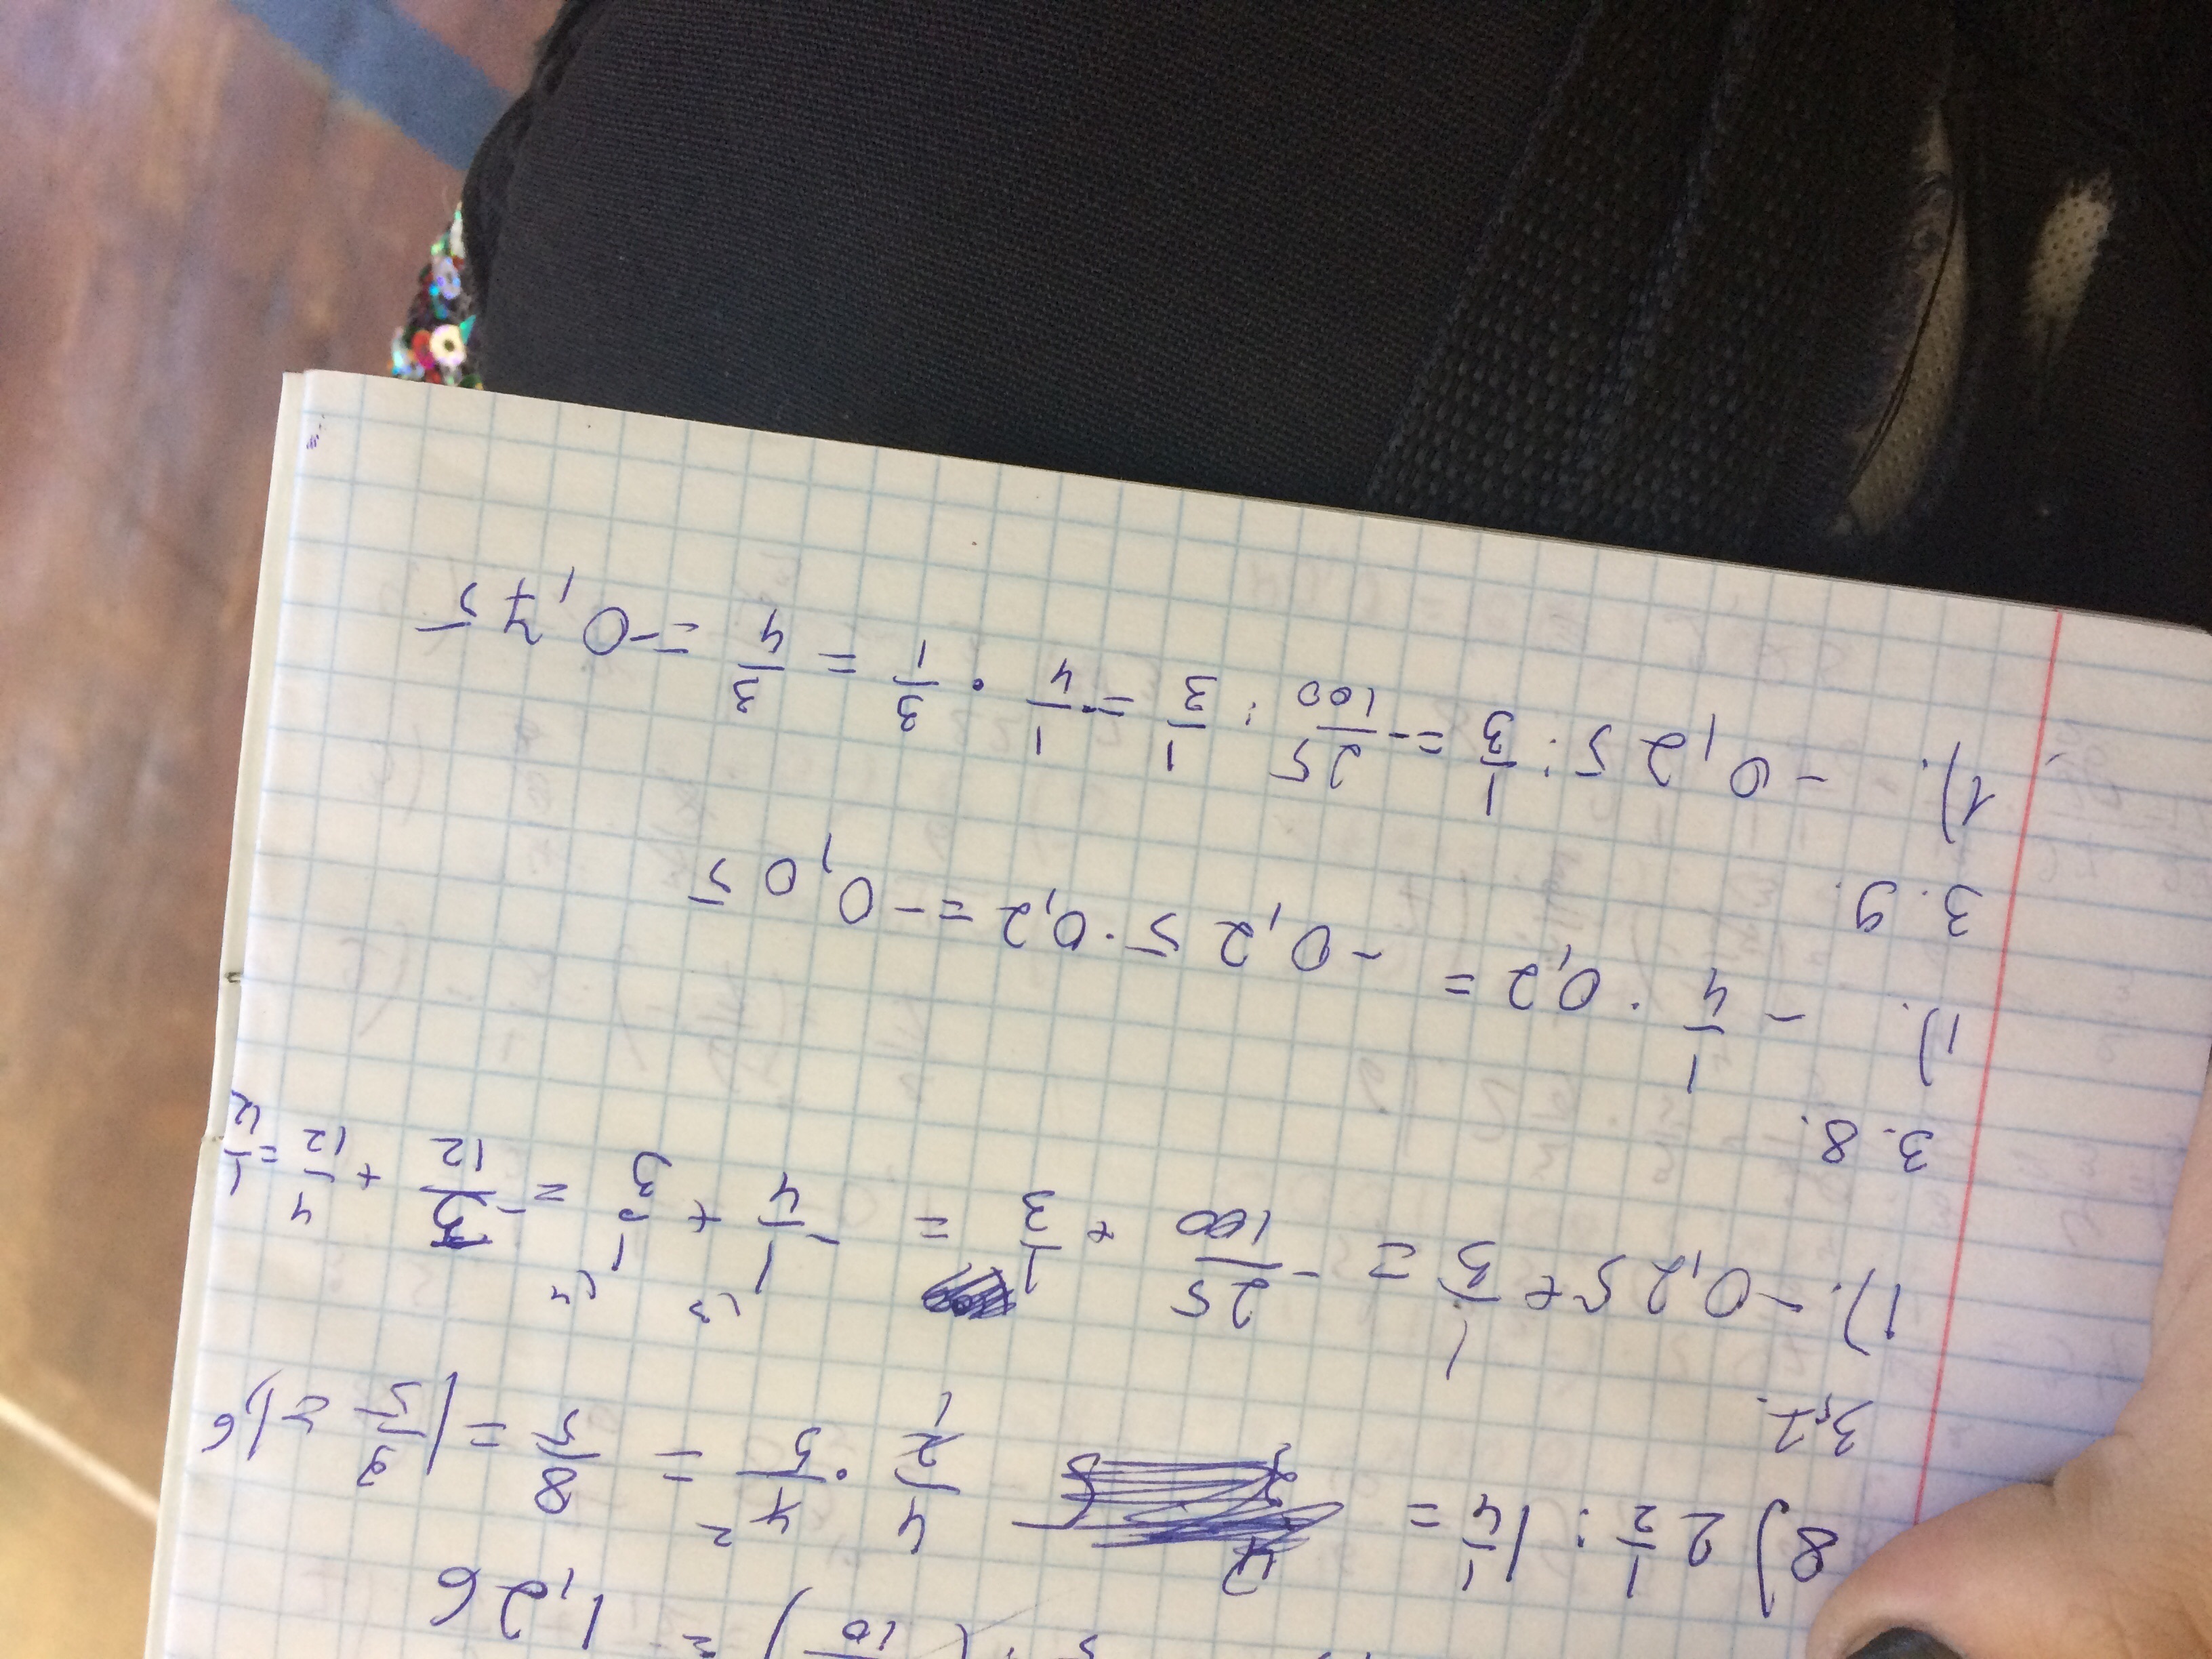 1,26
8) 2 1/2 : 1 1/4 = 4/2 · 4/5 = 8/5 = 1 3/5 = 1,6
3,7.
1). -0,25 + 1/3 = -25/100 + 1/3 = -1/4 + 1/3 = -3/12 + 4/12 = 1/12
3.8.
1). -1/4 · 0,2 = -0,25 · 0,2 = -0,05
3.9.
1). -0,25 : 1/3 = -25/100 : 1/3 = -1/4 · 3/1 = 3/4 = -0,75